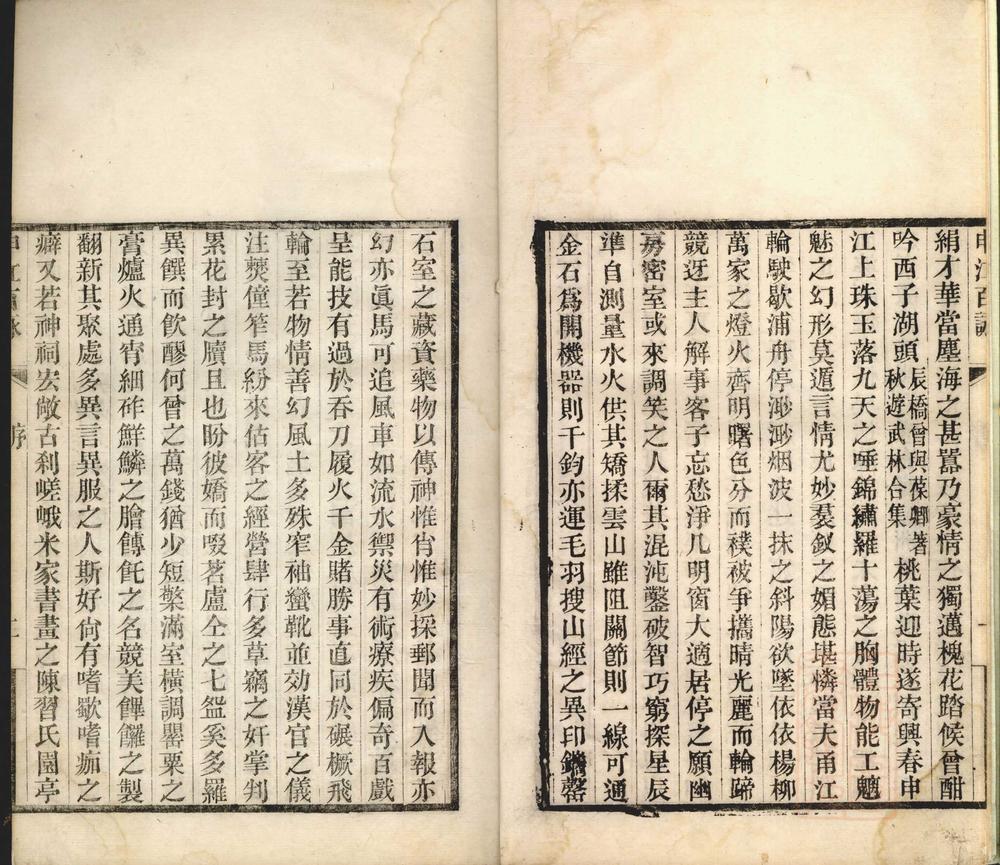 申江百詠
絹才華當塵海之甚囂乃豪情之獨邁槐花踏候曾酣
吟西子湖頭辰橋曾與葆卿著秋遊武林合集桃葉迎時遂寄興春申
江上珠玉落九天之唾錦繡羅十蕩之胸體物能工魑
魅之幻形莫遁言情尤妙裙釵之媚態堪憐當夫甬江
輪駛歇浦舟停渺渺烟波一抹之斜陽欲墜依依楊柳
萬家之燈火齊明曙色分而襆被爭攜晴光麗而輪蹄
競迓主人解事客子忘愁淨几明窗大適居停之願幽
房密室或來調笑之人爾其混沌鑿破智巧窮探星辰
準自測量水火供其矯揉雲山雖阻關節則一線可通
金石爲開機器則千鈞亦運毛羽搜山經之異印鐫罄
石室之藏資藥物以傳神惟肖惟妙採郵聞而入報亦
幻亦眞馬可追風車如流水禦災有術療疾偏奇百戲
呈能技有過於吞刀履火千金賭勝事直同於碾橛飛
輪至若物情善幻風土多殊窄袖蠻靴並効漢官之儀
注僰僮笮馬紛來估客之經營肆行多草竊之奸掌判
累花封之牘且也盼彼嬌而啜茗盧仝之七盌奚多羅
異饌而飲醪何曾之萬錢猶少短檠滿室橫調罌粟之
膏爐火通宵細斫鮮鱗之膾餺飥之名競美饆饠之製
翻新其聚處多異言異服之人斯好尙有嗜歜嗜痂之
癖又若神祠宏敞古刹嵯峨米家書畫之陳習氏園亭
序
二